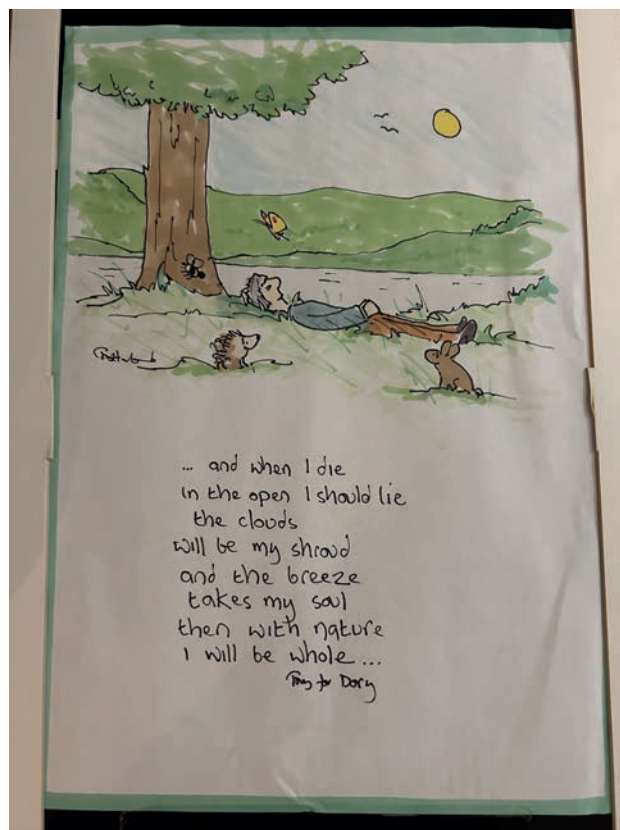 ... and when I die
in the open I should lie
the clouds
will be my shroud
and the breeze
takes my soul
then with nature
I will be whole...
for Dory